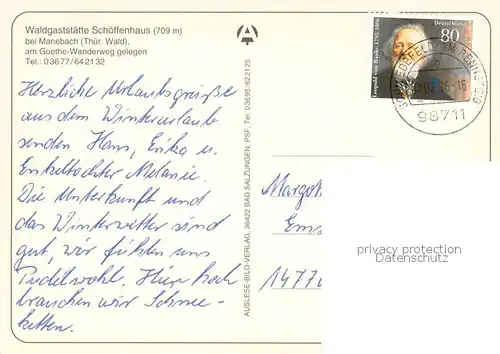 Waldgaststätte Schöffenhaus (709 m)
bei Manebach (Thür. Wald),
am Goethe-Wanderweg gelegen
Tel.: 0 36 77/64 21 32
Herzliche Urlaubsgrüße
aus dem Winterurlaube
senden Hans, Erika u.
Enkeltochter Melanie.
Die Unterkunft und
das Winterwetter sind
gut, wir fühlen uns
Pudelwohl. Hier hoch
brauchen wir Schnee-
ketten.
AUSLESE-BILD-VERLAG, 36422 BAD SALZUNGEN, PSF, Tel. 03695/622125
Leopold von Ranke 1795-1886
Deutschland
80
SCHMIEDEFELD AM RENNSTEIG
98711
Margot
Ems
14770
privacy protection
Datenschutz